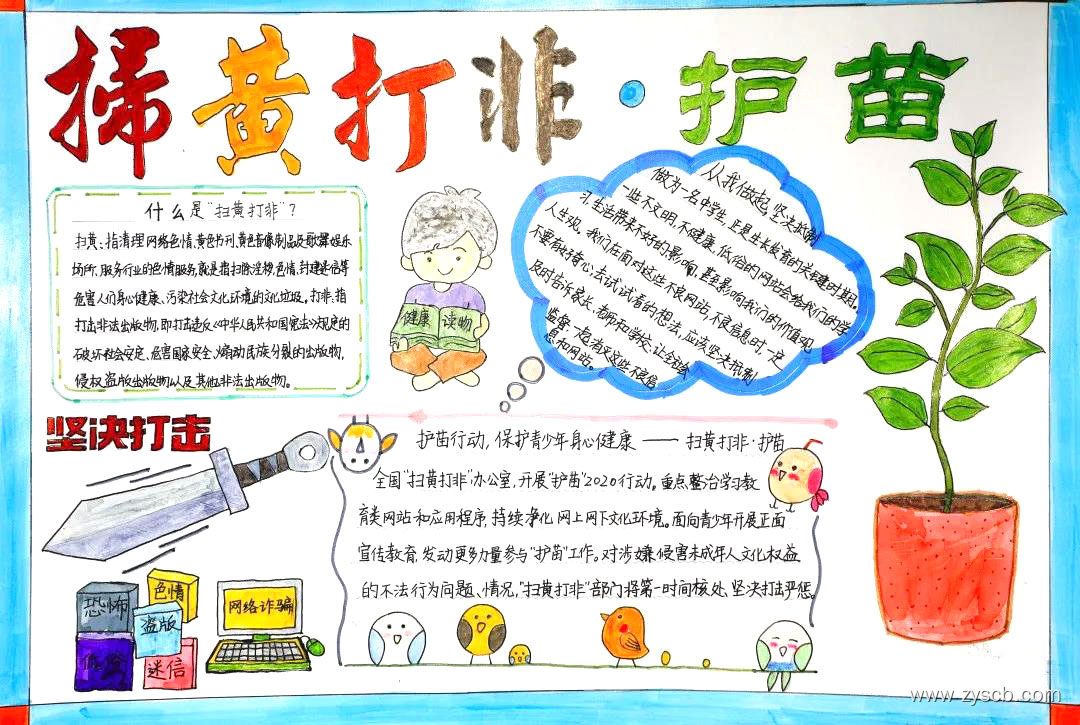 掃黄打非·护苗
什么是“扫黄打非”？
扫黄：指清理网络色情、黄色书刊、黄色音像制品及歌舞娱乐
场所、服务行业的色情服务，就是指扫除淫秽、色情、封建迷信等
危害人们身心健康、污染社会文化环境的文化垃圾。打非：指
打击非法出版物，即打击违反《中华人民共和国宪法》规定的
破坏社会安定、危害国家安全、煽动民族分裂的出版物，
侵权盗版出版物以及其他非法出版物。
健康读物
从我做起，坚决抵制
做为一名中学生，正是生长发育的关键时期。
一些不文明，不健康，低俗的网站会给我们的学
习，生活带来不好的影响，甚至影响我们的价值观
人生观。我们在面对这些不良网站，不良信息时，一定
不要有好奇心，去试试看的想法，应该坚决抵制
及时告诉家长、老师和学校，让全社会
监督，一起消灭这些不良信
息和网站。
坚决打击
护苗行动，保护青少年身心健康——扫黄打非·护苗
全国“扫黄打非”办公室，开展“护苗”2020行动。重点整治学习教
育类网站和应用程序，持续净化网上网下文化环境。面向青少年开展正面
宣传教育，发动更多力量参与“护苗”工作。对涉嫌侵害未成年人文化权益
的不法行为问题、情况，“扫黄打非”部门将第一时间核处、坚决打击严惩。
恐怖
色情
盗版
迷信
网络诈骗
www.zyscb.com